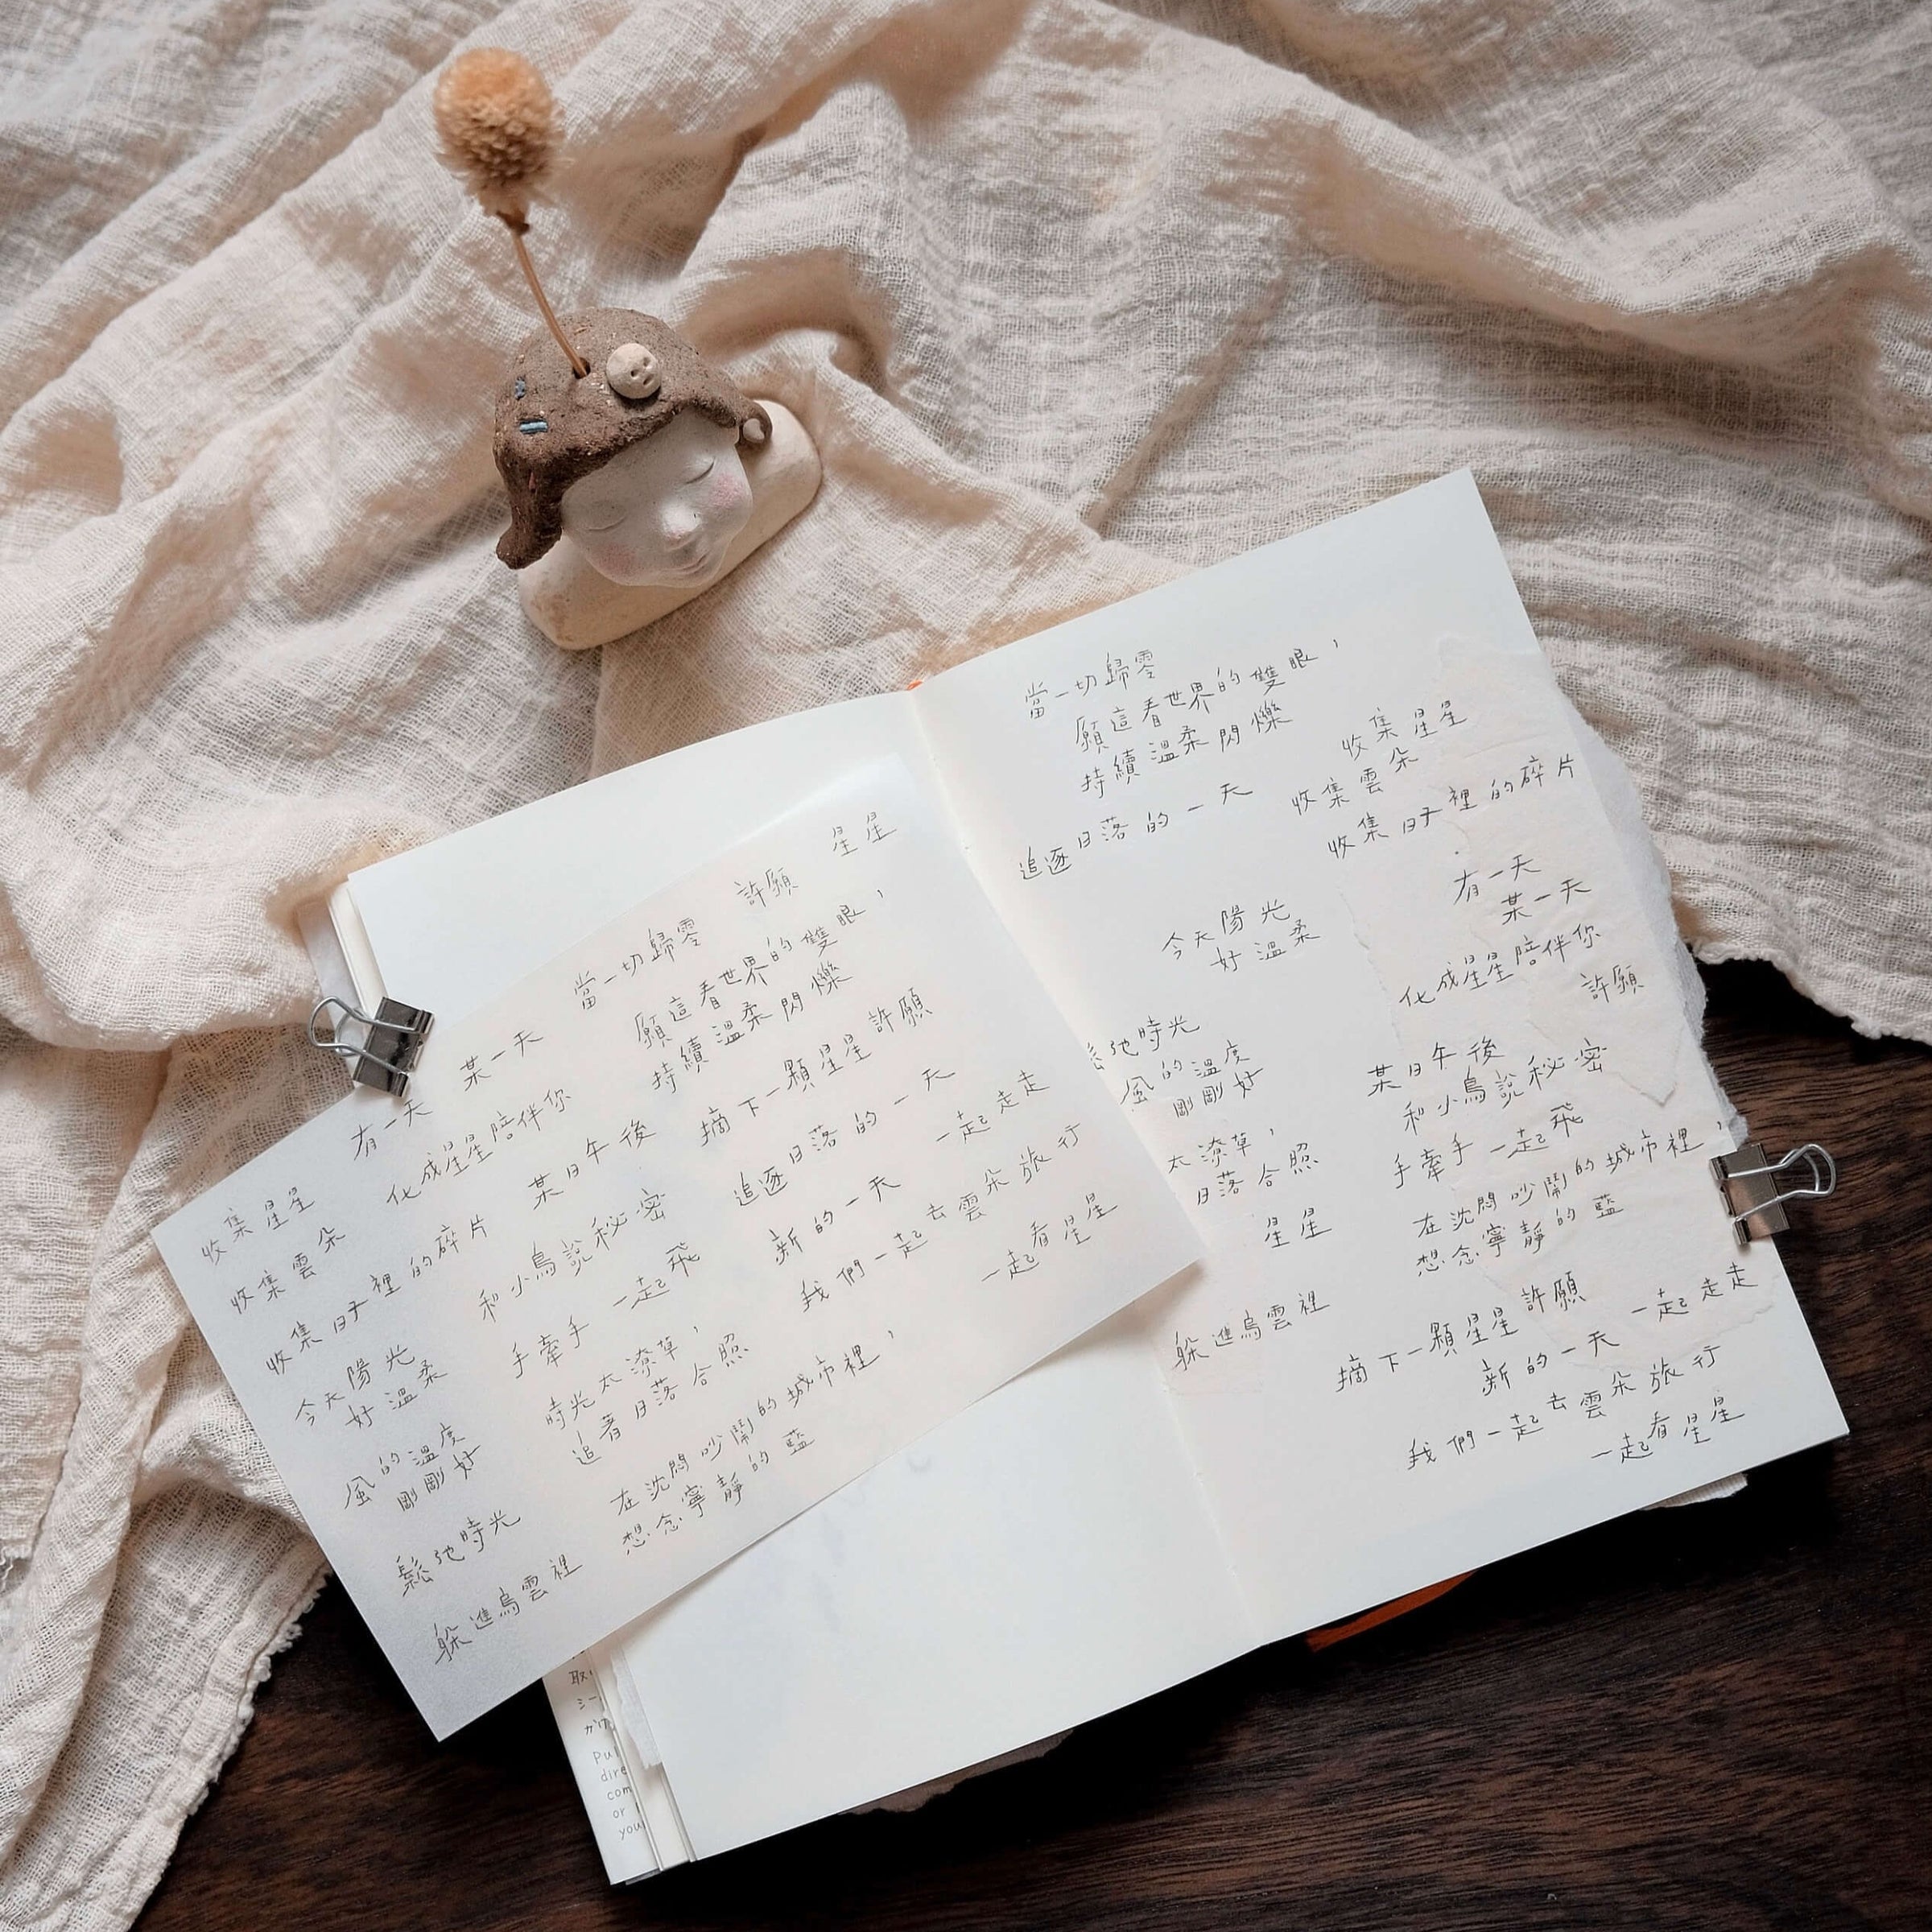 星星
許願
當一切歸零
願這看世界的雙眼，
持續溫柔閃爍
某一天
有一天
化成星星陪伴你
摘下一顆星星許願
某日午後
和小鳥說秘密
手牽手一起飛
追逐日落的一天
一起走走
新的一天
我們一起去雲朵旅行
一起看星星
收集星星
收集雲朵
收集日子裡的碎片
今天陽光
好溫柔
風的溫度
剛剛好
鬆弛時光
躲進烏雲裡
時光太潦草，
追著日落合照
在沈悶吵鬧的城市裡，
想念寧靜的藍
當一切歸零
願這看世界的雙眼，
持續溫柔閃爍
追逐日落的一天
收集星星
收集雲朵
收集日子裡的碎片
今天陽光
好溫柔
有一天
某一天
化成星星陪伴你
許願
弛時光
風的溫度
剛剛好
太潦草，
日落合照
星星
躲進烏雲裡
某日午後
和小鳥說秘密
手牽手一起飛
在沈悶吵鬧的城市裡，
想念寧靜的藍
摘下一顆星星許願
一起走走
新的一天
我們一起去雲朵旅行
一起看星星
取
シー
かけ
Pu
dire
com
or
you